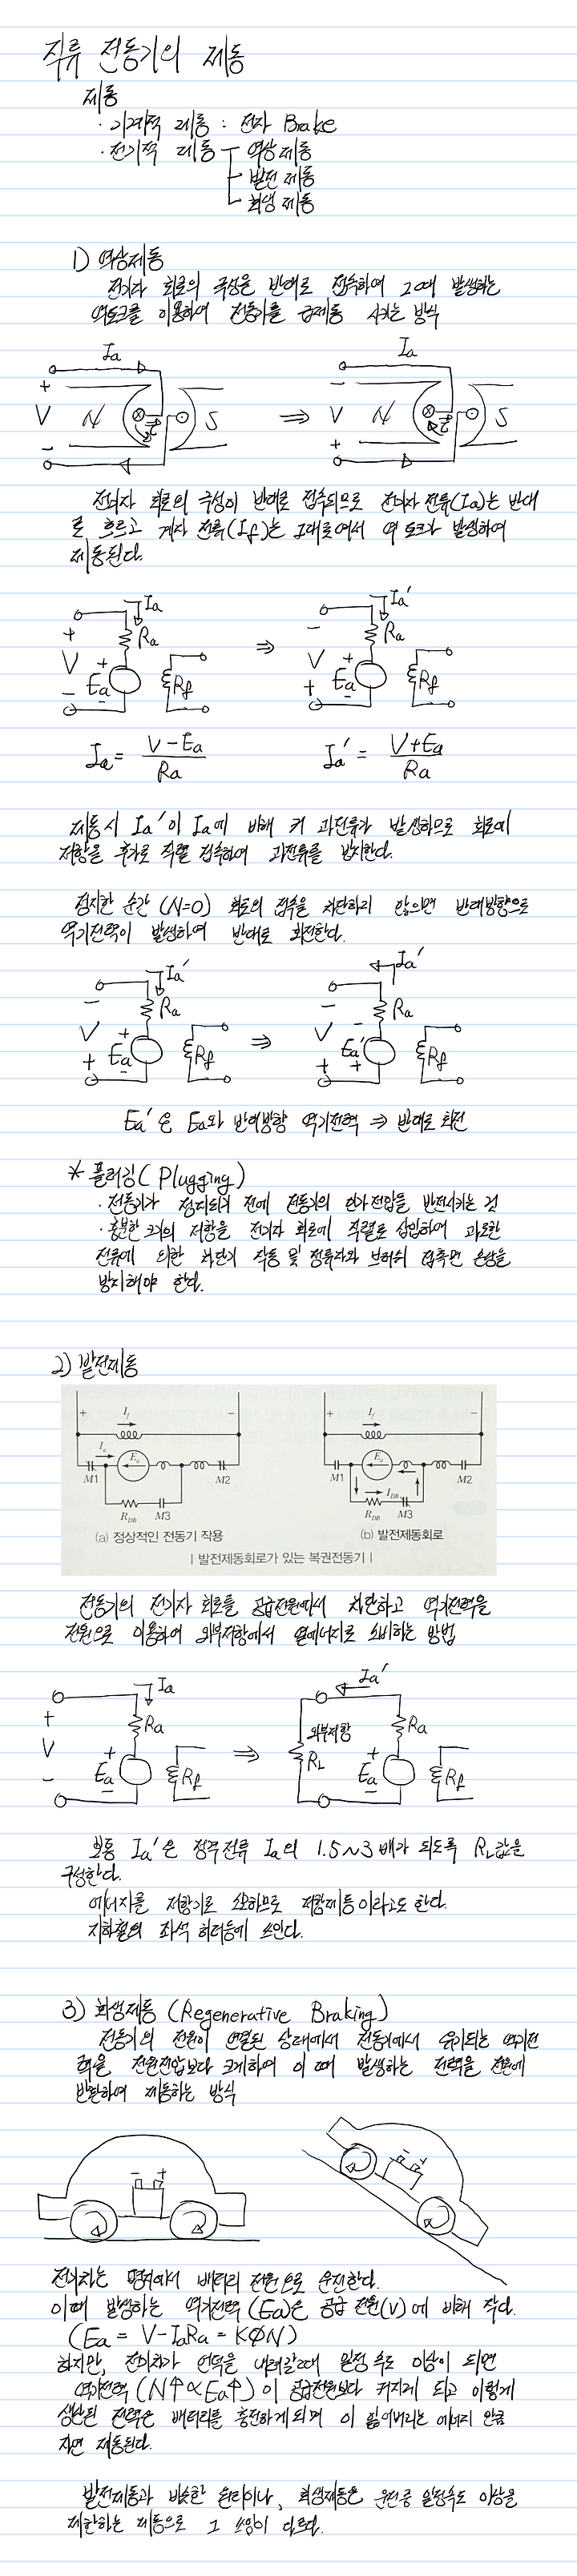 직류 전동기의 제동
제동
· 기계적 제동 : 전자 Brake
· 전기적 제동 역상제동
발전 제동
회생 제동
1) 역상제동
전기자 회로의 극성을 반대로 접속하여 그때 발생하는
역토크를 이용하여 전동기를 급제동 시키는 방식
Ia
+ V - N S
⇒
Ia
- V + N S
전기자 회로의 극성이 반대로 접속되므로 전기자 전류(Ia)는 반대
로 흐르고 계자 전류(If)는 그대로여서 역 토크가 발생하여
제동된다.
Ia
Ra
+ V - + Ea - Rf
⇒
Ia'
Ra
- V + + Ea - Rf
Ia = V-Ea / Ra
Ia' = V+Ea / Ra
제동시 Ia'이 Ia에 비해 커 과전류가 발생하므로 회로에
저항을 추가로 직렬 접속하여 과전류를 방지한다.
정지한 순간 (N=0) 회로의 접속을 차단하지 않으면 반대방향으로
역기전력이 발생하여 반대로 회전한다.
Ia'
Ra
- V + + Ea - Rf
⇒
Ia'
Ra
- V + - Ea' + Rf
Ea'은 Ea와 반대방향 역기전력 ⇒ 반대로 회전
* 플러깅 (Plugging)
· 전동기가 정지되기 전에 전동기의 인가전압을 반전시키는 것
· 충분한 크기의 저항을 전기자 회로에 직렬로 삽입하여 과도한
전류에 의한 차단기 작동 및 정류자와 브러쉬 접촉면 손상을
방지해야 한다.
2) 발전제동
+ If -
Ia Ea
M1 M2
RDB M3
(a) 정상적인 전동기 작용
+ If -
Ea
M1 M2
IDB
RDB M3
(b) 발전제동회로
| 발전제동회로가 있는 복권전동기 |
전동기의 전기자 회로를 공급전원에서 차단하고 역기전력을
전원으로 이용하여 외부저항에서 열에너지로 소비하는 방법
Ia
Ra
+ V - + Ea - Rf
⇒
Ia'
외부저항
RL
Ra
+ Ea - Rf
보통 Ia'은 정격전류 Ia의 1.5~3배가 되도록 RL값을
구성한다.
에너지를 저항기로 소모하므로 저항제동이라고도 한다.
지하철의 좌석 히터등에 쓰인다.
3) 회생제동 (Regenerative Braking)
전동기의 전원이 연결된 상태에서 전동기에서 유기되는 역기전
력을 전원전압보다 크게하여 이 때 발생하는 전력을 전원에
반환하여 제동하는 방식
- +
- +
전기차는 평지에서 배터리 전원으로 운전한다.
이때 발생하는 역기전력(Ea)은 공급 전원(V)에 비해 작다.
(Ea = V-IaRa = KØN)
하지만, 전기차가 언덕을 내려갈때 일정 속도 이상이 되면
역기전력 (N↑∝Ea↑)이 공급전원보다 커지게 되고 이렇게
생산된 전력은 배터리를 충전하게되며 이 잃어버리는 에너지 만큼
자연 제동된다.
발전제동과 비슷한 원리이나, 회생제동은 운전중 일정속도 이상을
제한하는 제동으로 그 쓰임이 다르다.